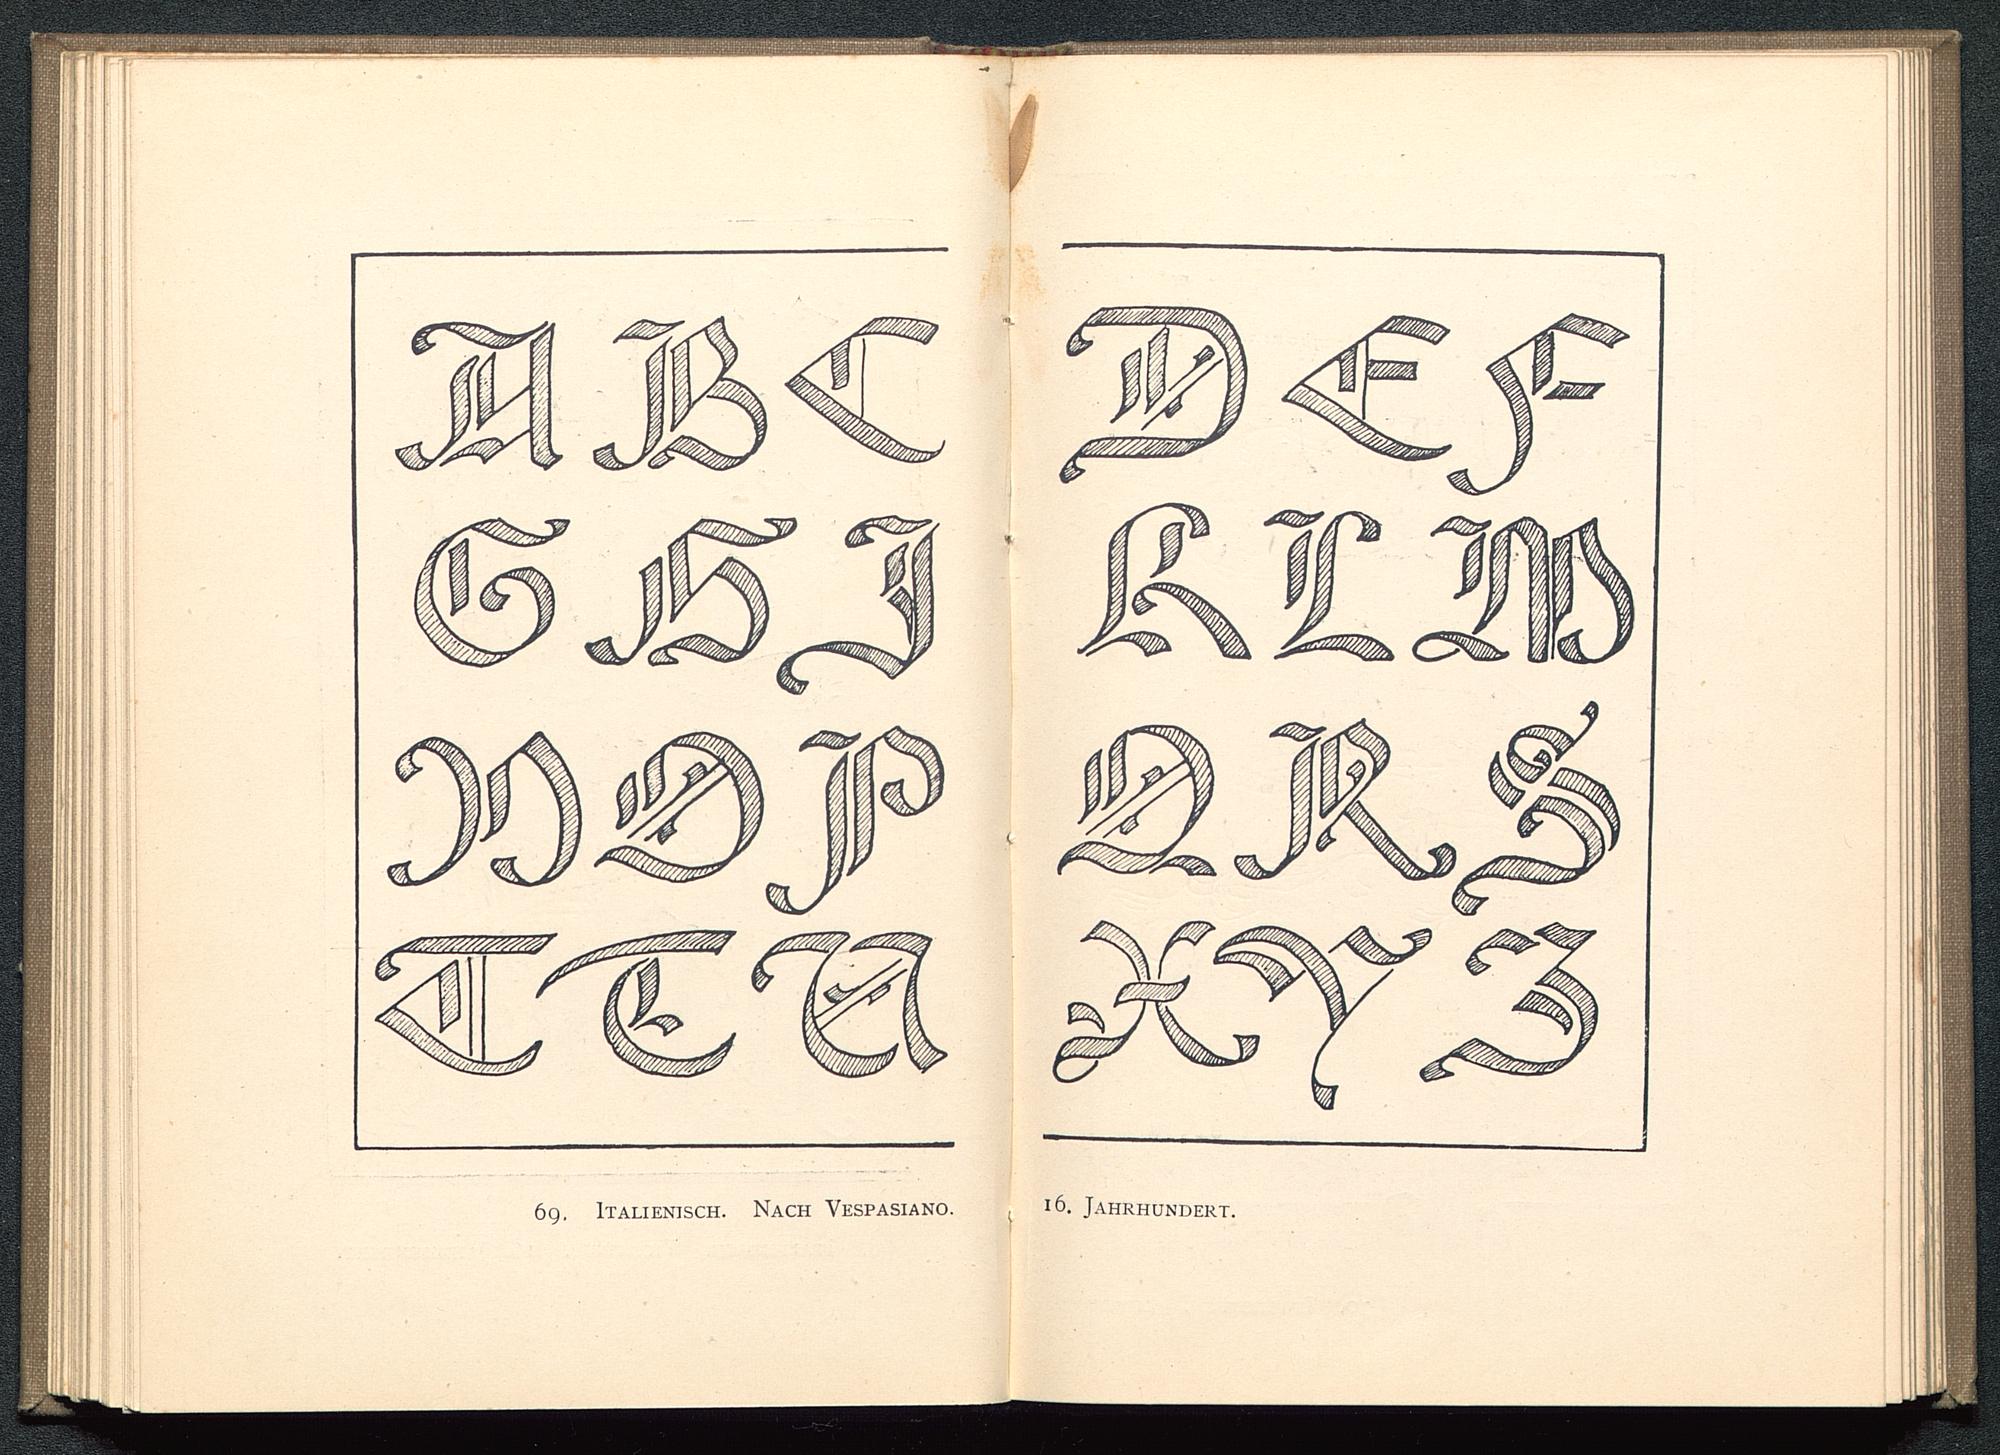 A B C D E F
G H I K L M
N O P Q R S
T T U X Y Z
69. Italienisch. Nach Vespasiano. 16. Jahrhundert.